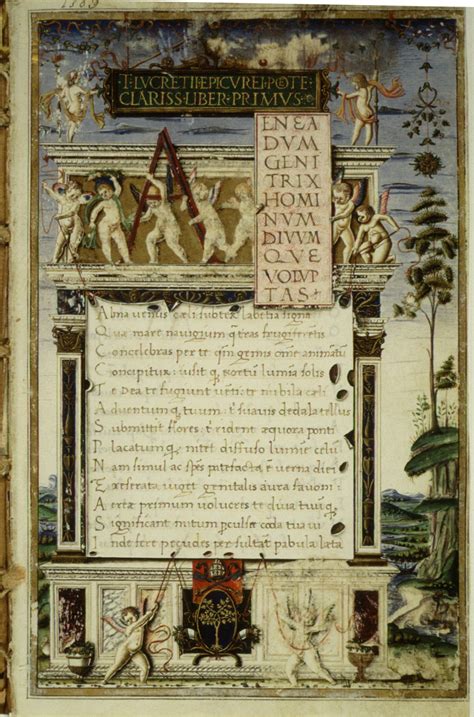 T·LVCRETII·EPICVREI·POETE
CLARISS·LIBER·PRIMVS·
A
ENEA
DVM
GENI
TRIX
HOMI
NVM
DIVVM
QVE
VOLVP
TAS
Alma venus cæli subter labētia signa
Quæ mare navigerū q̄ terras frugiferētis
Concelebras per te qm̄ genus om̄e animātū
Concipitur: visit q; exortū lumīa solis
Te Dea te fugiunt venti: te nubila cæli
Adventumq; tuum: t̄ suavis dedala tellus
Submittit flores: t̄ rident æquora ponti
Placatumq; nitet diffuso lumīe celū
Nam simul ac spēs patefacta ē verna diei
Et reserata viget genitalis aura favoni
Aeriæ primum volucres te diva tuūq;
Significant initum perculse corda tua vi
Inde fere pecudes persultāt pabula læta